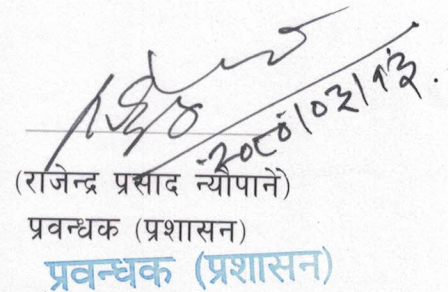 २०८०|०३|१३.
(राजेन्द्र प्रसाद न्यौपाने)
प्रवन्धक (प्रशासन)
प्रवन्धक (प्रशासन)